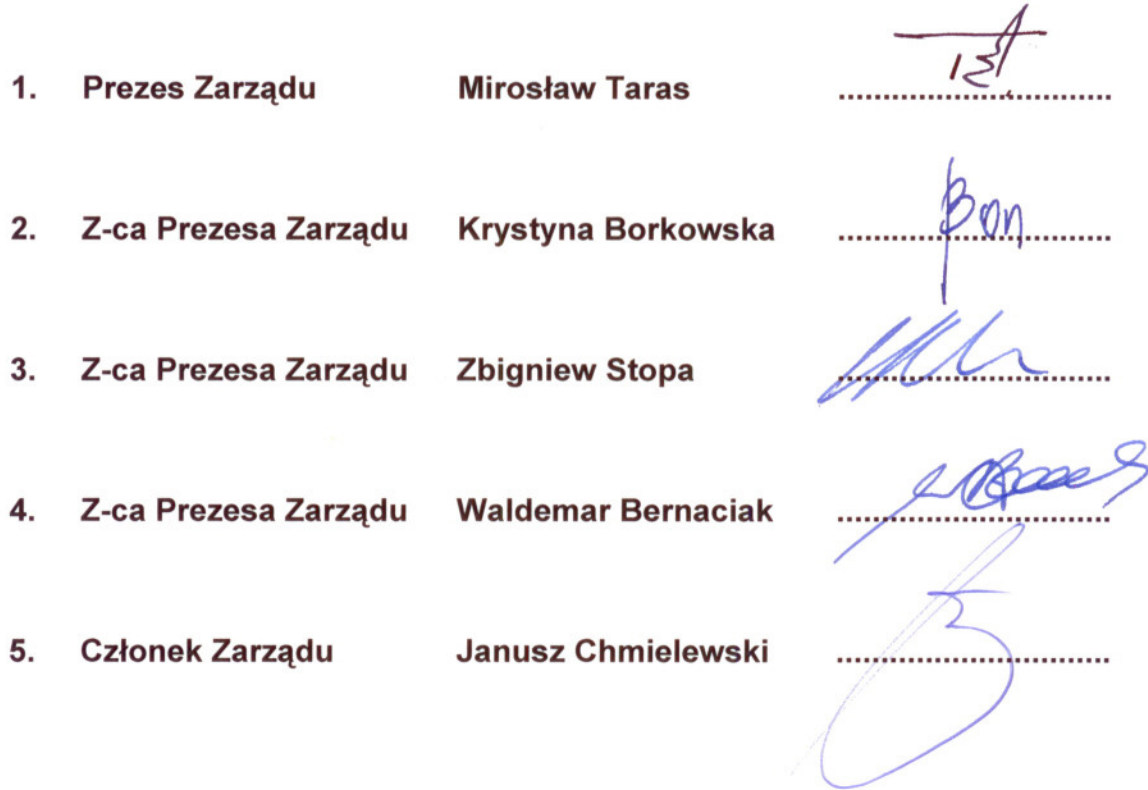 1. Prezes Zarządu Mirosław Taras ................................
2. Z-ca Prezesa Zarządu Krystyna Borkowska ................................
3. Z-ca Prezesa Zarządu Zbigniew Stopa ................................
4. Z-ca Prezesa Zarządu Waldemar Bernaciak ................................
5. Członek Zarządu Janusz Chmielewski ................................